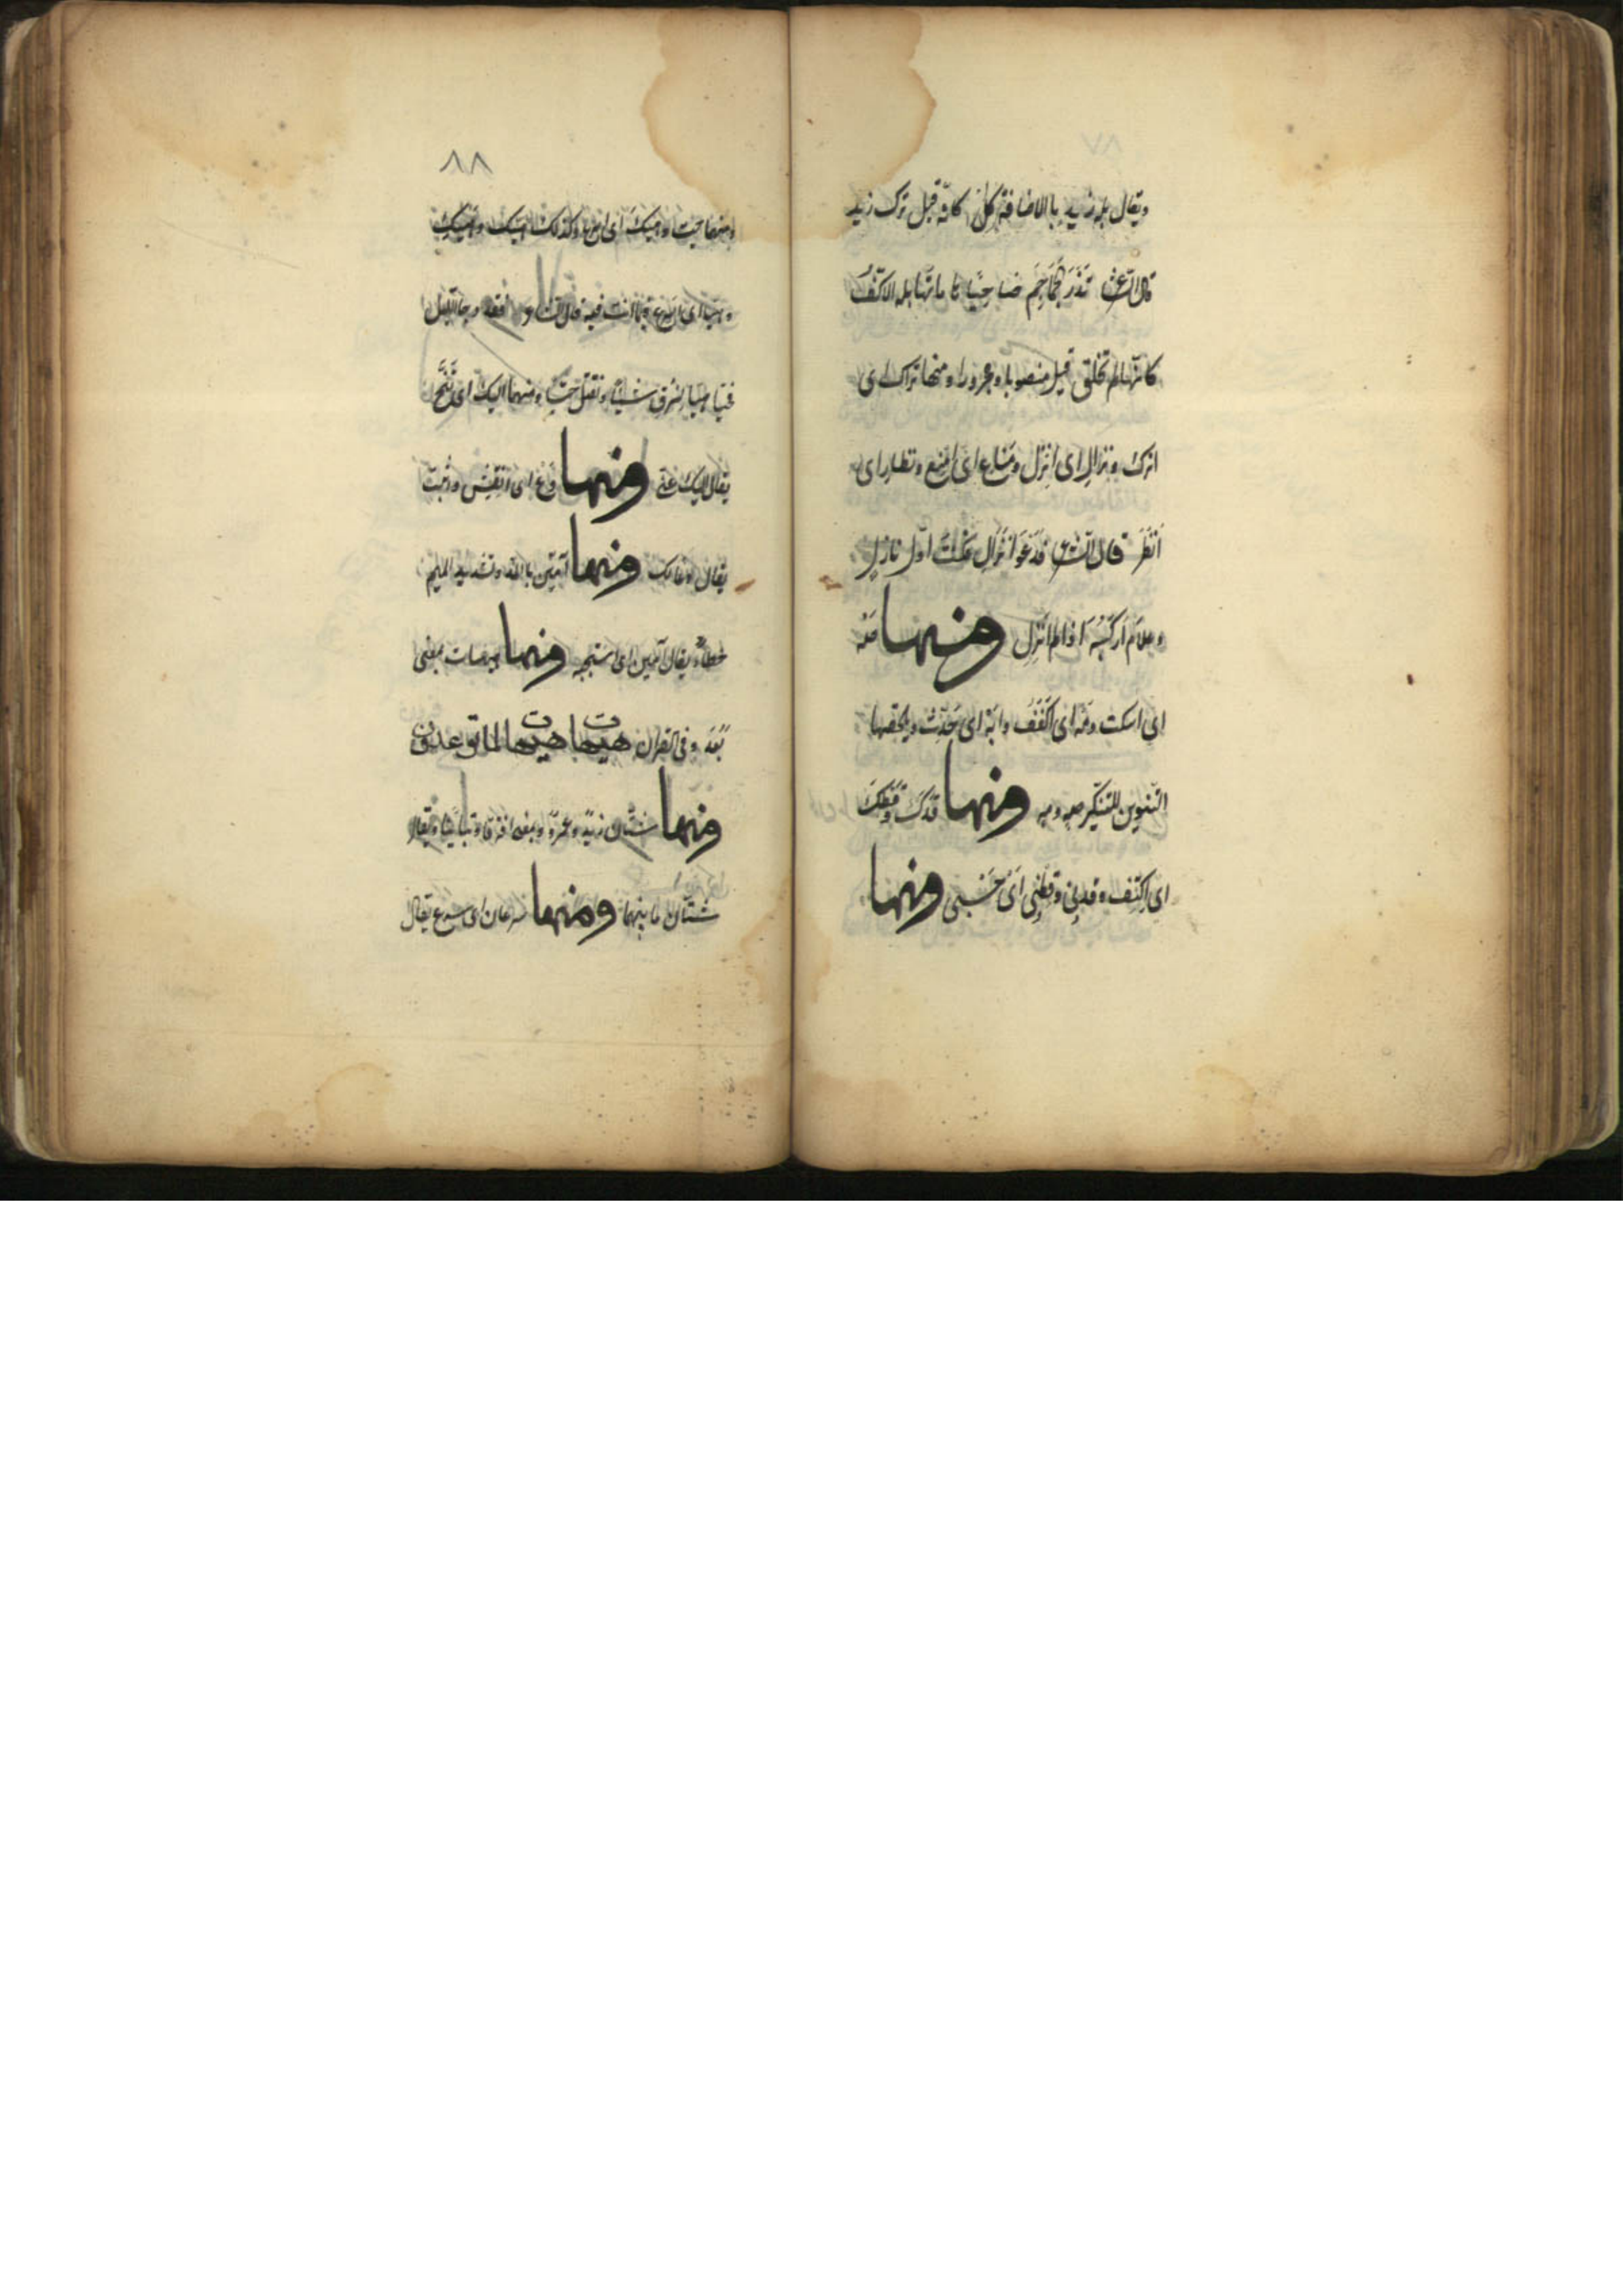 ويقال بله زيد بالاضافة كانه قيل ترك زيد
قال الشاعر تذر الجماجم ضاحيا هاماتها بله الاكف
كانها لم تخلق قيل منصوبا ومجرورا ومنها تراك اى
اترك ونزال اى انزل ومناع اى امنع ونظار اى
انظر قال الشاعر فدعوا نزال فكنت اول نازل
وعلام اركبه اذا لم انزل ومنها صه
اى اسكت ومه اى اكفف وايه اى حدث ويلحقها
التنوين للتنكير صه ومه ومنها قدك وقطك
اى اكتف وقدنى وقطنى اى حسبى ومنها
٨٨
ومنها هيت اى اسرع وكذلك هيك وهيك
وهيا اى اسرع فيما انت فيه قال
ومنها اليك اى تنح
يقال اليك عنى ومنها دع اى انتعش
يقال ومنها آمين بالمد وتشديد الميم
خطاء يقال آمين اى استجب ومنها هيهات بمعنى
بعد وفى القران هيهات هيهات لما توعدون
ومنها شتان زيد وعمرو بمعنى افترقا وتباينا ويقال
شتان ما بينهما ومنها سرعان اى سرع يقال